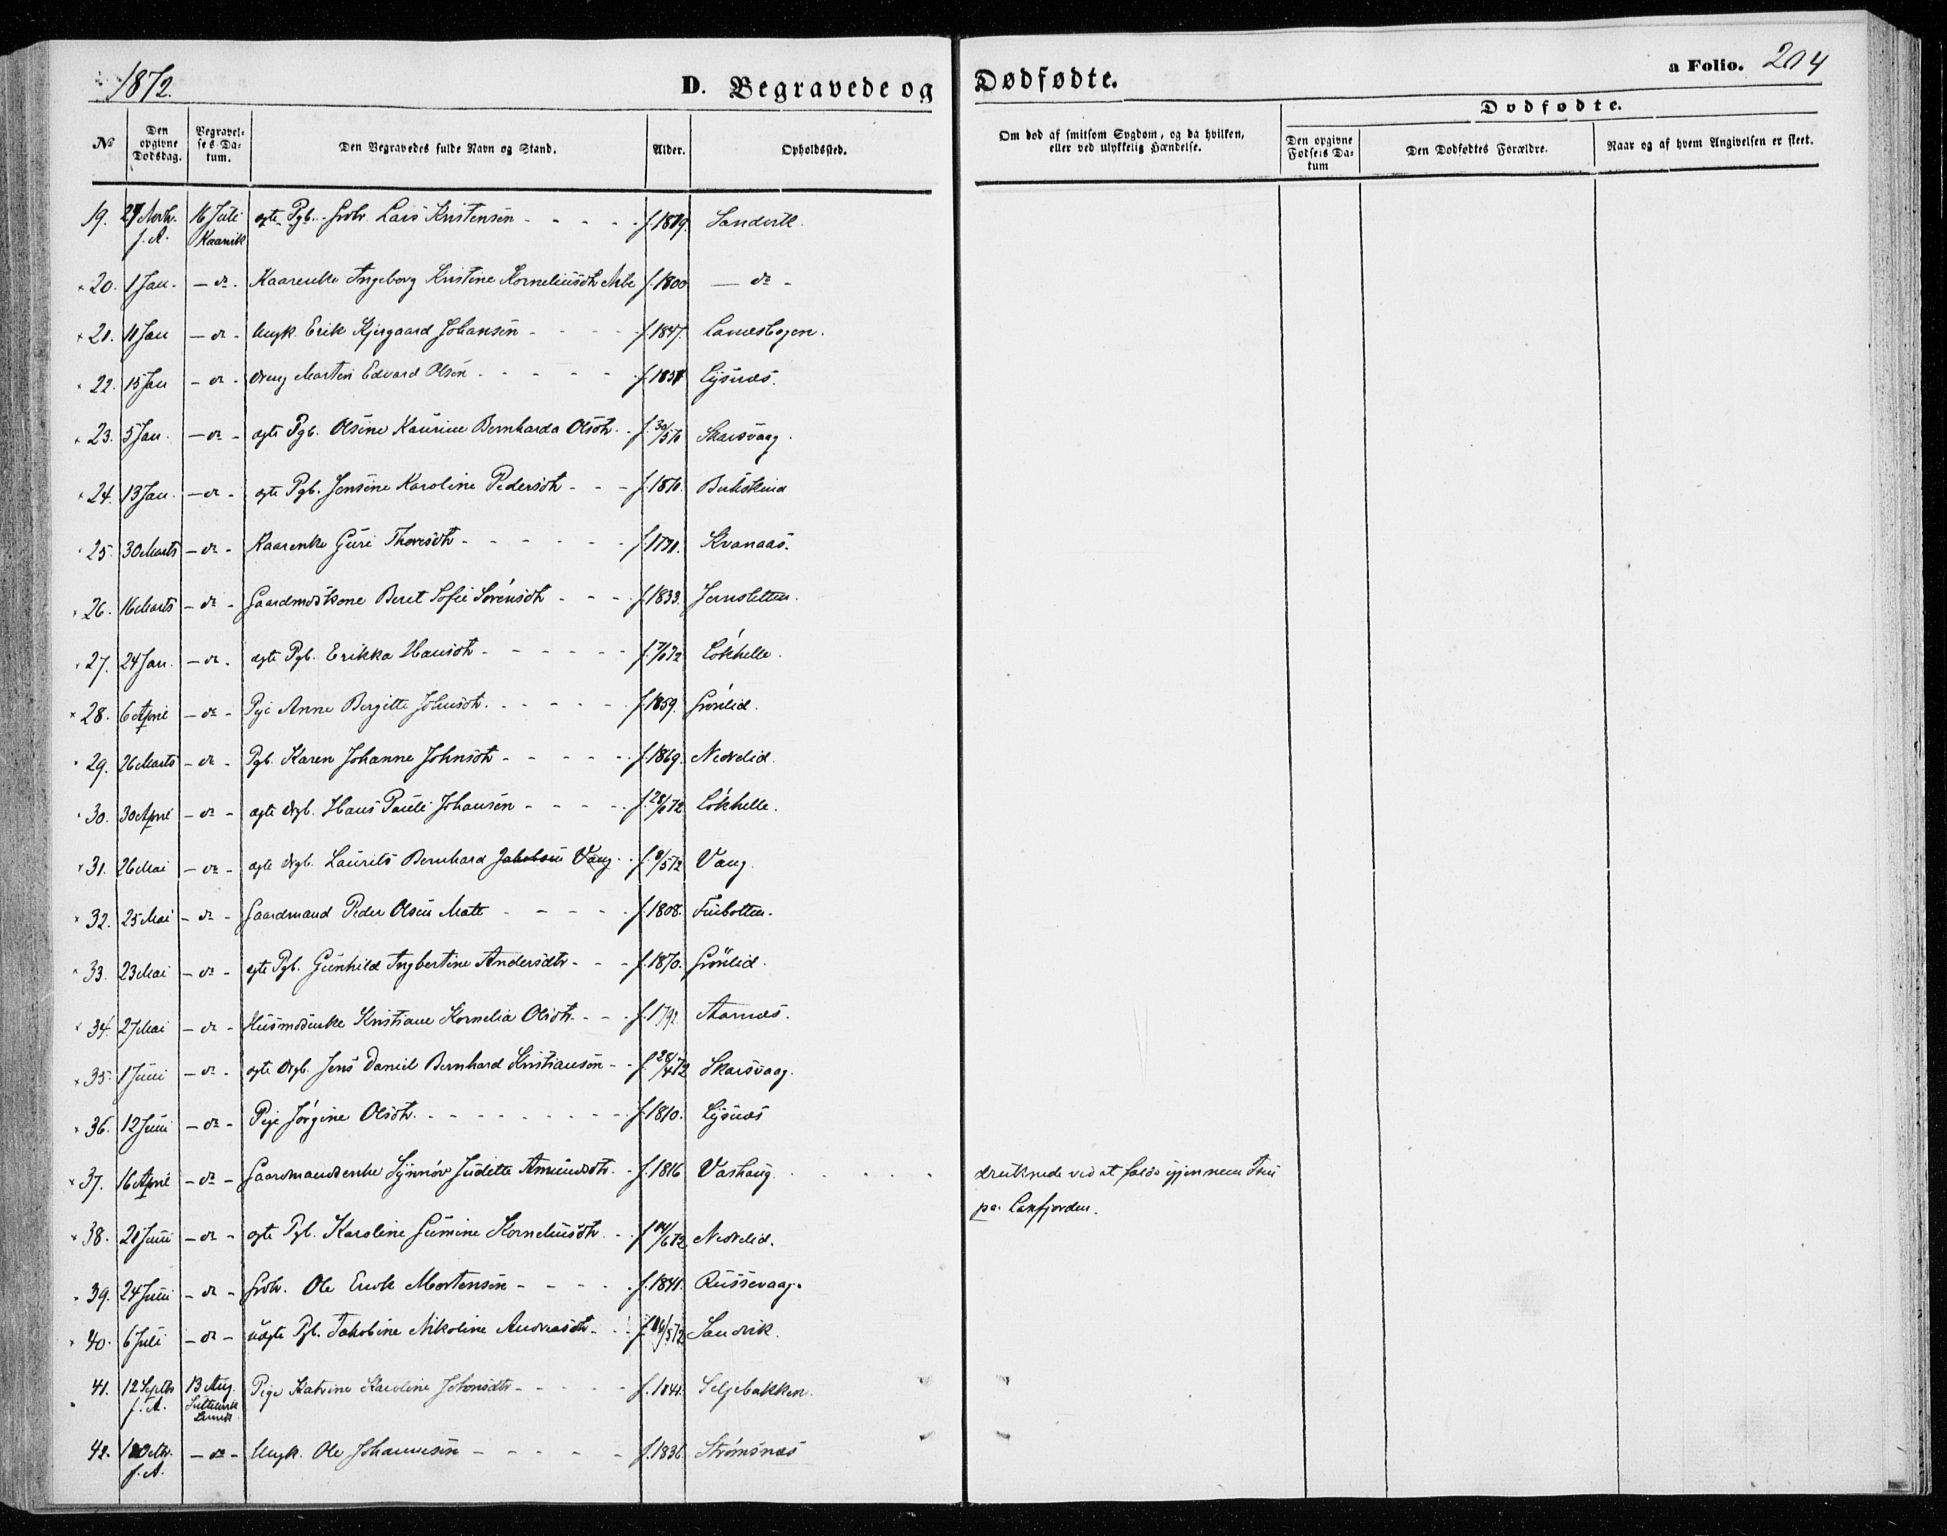 1872.
D. Begravede og Dødfødte.
a Folio. 204
Dødfødte.
No
Den opgivne Dødsdag.
Begravelses-Datum.
Den Begravedes fulde Navn og Stand.
Alder.
Opholdssted.
Om død af smitsom Sygdom, og da hvilken, eller ved ulykkelig Hændelse.
Den opgivne Fødsels Datum
Den Dødfødtes Forældre.
Naar og af hvem Angivelsen er skeet.
19. 27 Novbr. f. A. 16 Juli Kaarvik ægte Pgb. Lars Kristensen f. 1819.
20. 1 Jan. - do - Kaarenke Ingeborg Kristine Korneliusdtr f. 1800 - do -
21. 11 Jan - do - Ungk. Erik Kjergaard Johansen f. 1847.
22. 15 Jan - do - Dreng Martin Edvard Olsen Lysnæs.
23. 5 Jan. - do - ægte Pgb. Olsine Kaurine Bernharda Olsdtr. Skarsvaag.
24. 13 Jan. - do - ægte Pgb. Jensine Karoline Pedersdtr f. 1870. Bukskind
25. 30 Marts - do - Kaarenke Guri Thoresdtr Kvanaas.
26. 16 Marts - do - Gaardmdskone Beret Sofie Sørensdtr f. 1833. Jernsletten.
27. 24 Jan. - do - ægte Pgb. Erikka Hansdtr Løkhelle.
28. 6 April - do - Pige Anne Bergitte Johnsdtr. f. 1859. Grønlid.
29. 26 Marts - do - Pgb. Karen Johanne Johnsdtr f. 1869. Nedrelid.
30. 30 April - do - ægte Drgb. Hans Pauli Johansen Løkhelle.
31. 26 Mai - do - ægte Drgb. Laurits Bernhard Jakobsen Vang. Vang.
32. 25 Mai - do - Gaardmand Peder Olsen f. 1808. Finbotten.
33. 23 Mai - do - ægte Pgb. Gunhild Ingbertine Andersdtr f. 1870. Grønlid.
34. 27 Mai - do - Husmdenke Kristiane Kornelia Olsdtr. f. 1792. Aarnæs.
35. 1 Juni - do - ægte Drgb. Jens Daniel Bernhard Kristiansen f. 28/4 72 Skarsvaag.
36. 12 Juni - do - Pige Jørgine Olsdtr. f. 1810. Lysnæs
37. 16 April - do - Gaardmandsenke Synnøv Judette Amundsdtr. f. 1816 Vashaug druknede ved at falde igjennem Isen
paa Laxfjorden.
38. 21 Juni - do - ægte Pgb. Karoline Gumine Korneliusdtr. Nedrelid.
39. 24 Juni - do - Ole Erik Mortensen f. 1841. Russevaag.
40. 6 Juli - do - uægte Pgb. Jakobine Nikoline Andreasdtr. Sandvik.
41. 12 Septbr f. A. 13 Aug. Pige Katrine Karoline Johansdtr f. 1841. Seljebakken.
42. f. A. - do - Ungk. Ole Johannesen f. 1836. Strømsnæs